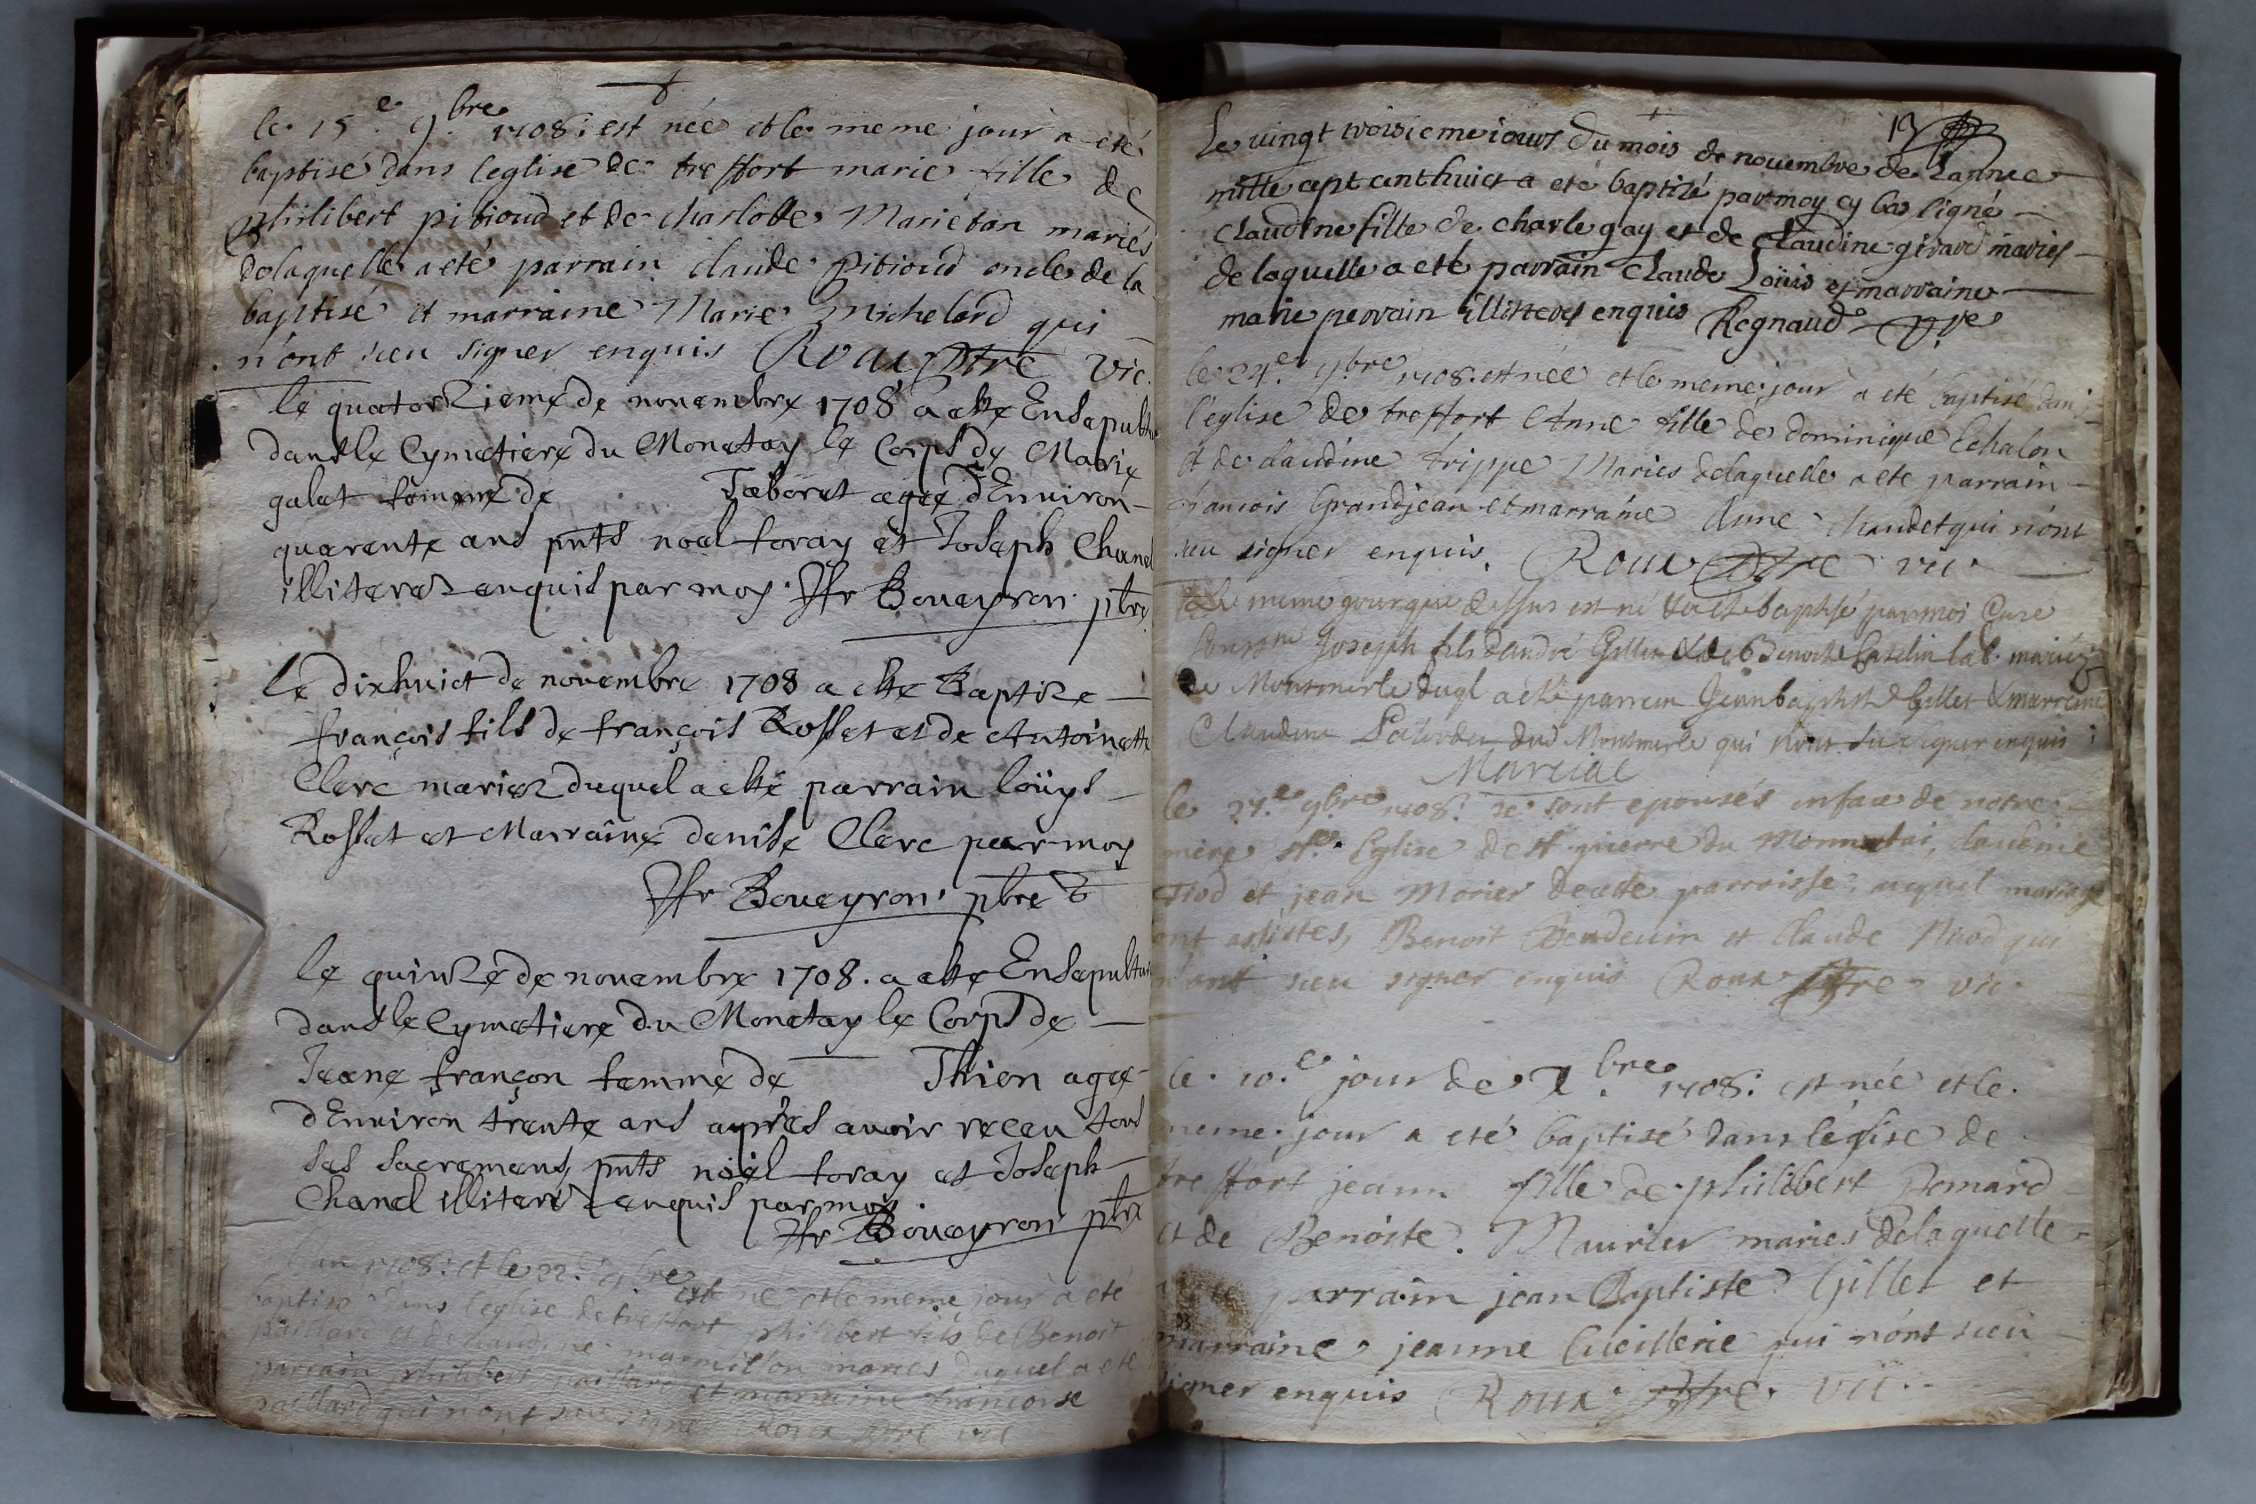 le 15.e 9.bre 1708. est née et le meme jour a eté
baptisé dans l'eglise de treffort marie fille de
philibert pitioud et de charlotte Marietan mariés
de laquelle a eté parrain claude Pitioud oncle de la
baptisé et marraine Marie Michelard qui
n'ont sceu signer enquis Roux ptre vic.
le quatorzieme de novembre 1708 a este Ensepultu
dans le Cymetiere du Monetay le Corps de Marie
galet femme de Taboret agée d'Environ
quarente ans pnts noel foray et Joseph Chanel
illiterez enquis par moy. Boueyron pbre
le dixhuict de novembre 1708 a este Baptize
françois fils de françois Rosset et de Antoinette
Clerc mariez duquel a este parrain loüys
Rosset et Marraine denise Clerc par moy
Boueyron pbre
le quinze de novembre 1708. a este Ensepultur
dans le Cymetiere du Monetay le Corps de
Jeane françon femme de Thien agée
d'Environ trente ans apres avoir receu tous
ses sacremens, pnts noël foray et Joseph
Chanel illiterez enquis par moy.
Boueyron pbre
l'an 1708. et le 22. 9.bre est né et le meme jour a eté
baptisé dans l'eglise de treffort philibert fils de Benoit
paillard et de claudine marmillon mariés duquel a eté
parrain philibert paillard et marraine francoise
paillard qui n'ont sceu signer Roux ptre vic
13
Le vingt troisieme iour du mois de novembre de Lannee
mille sept cent huict a eté baptizé par moy cy bas signé
Claudine fille de charle gay et de Claudine girard mariés
de laquelle a eté parrain Claude Loüis et marraine
marie perrain illiteres enquis Regnaud ptre
le 24.e 9.bre 1708. est née et le meme jour a eté baptisé dans
l'eglise de treffort Anne fille de dominique Echalon
et de claudine trippe Mariés delaquelle a eté parrain
francois Grandjean et marraine Anne chaudet qui n'ont
sceu signer enquis. Roux ptre vic.
Le meme jour que dessus est né et a esté baptisé par moi Curé
Joseph fils d'andré Gillet et de Benoite mariés
de Montmerle duql a été parrein Jean baptiste Gillet & marreine
Claudine dud Montmerle qui n'ont su signer enquis
Marciat
le 27.e 9.bre 1708. se sont epousés en face de notre
mere ste. Eglise de st. pierre du Monnetai, claudine
Niod et jean Morier de cette parroisse, auquel mariage
ont assistes, Benoit et Claude Niod qui
n'ont sceu signer enquis Roux ptre vic.
le. 10.e jour de X.bre 1708. est née et le.
meme jour a eté baptisé dans l'eglise de
treffort jeann fille de philibert Pomard
et de Benoite. Maurier mariés delaquelle
a eté parrain jean Baptiste Gillet et
marraine jeanne Cueillerie qui n'ont sceu
signer enquis Roux ptre. vic.